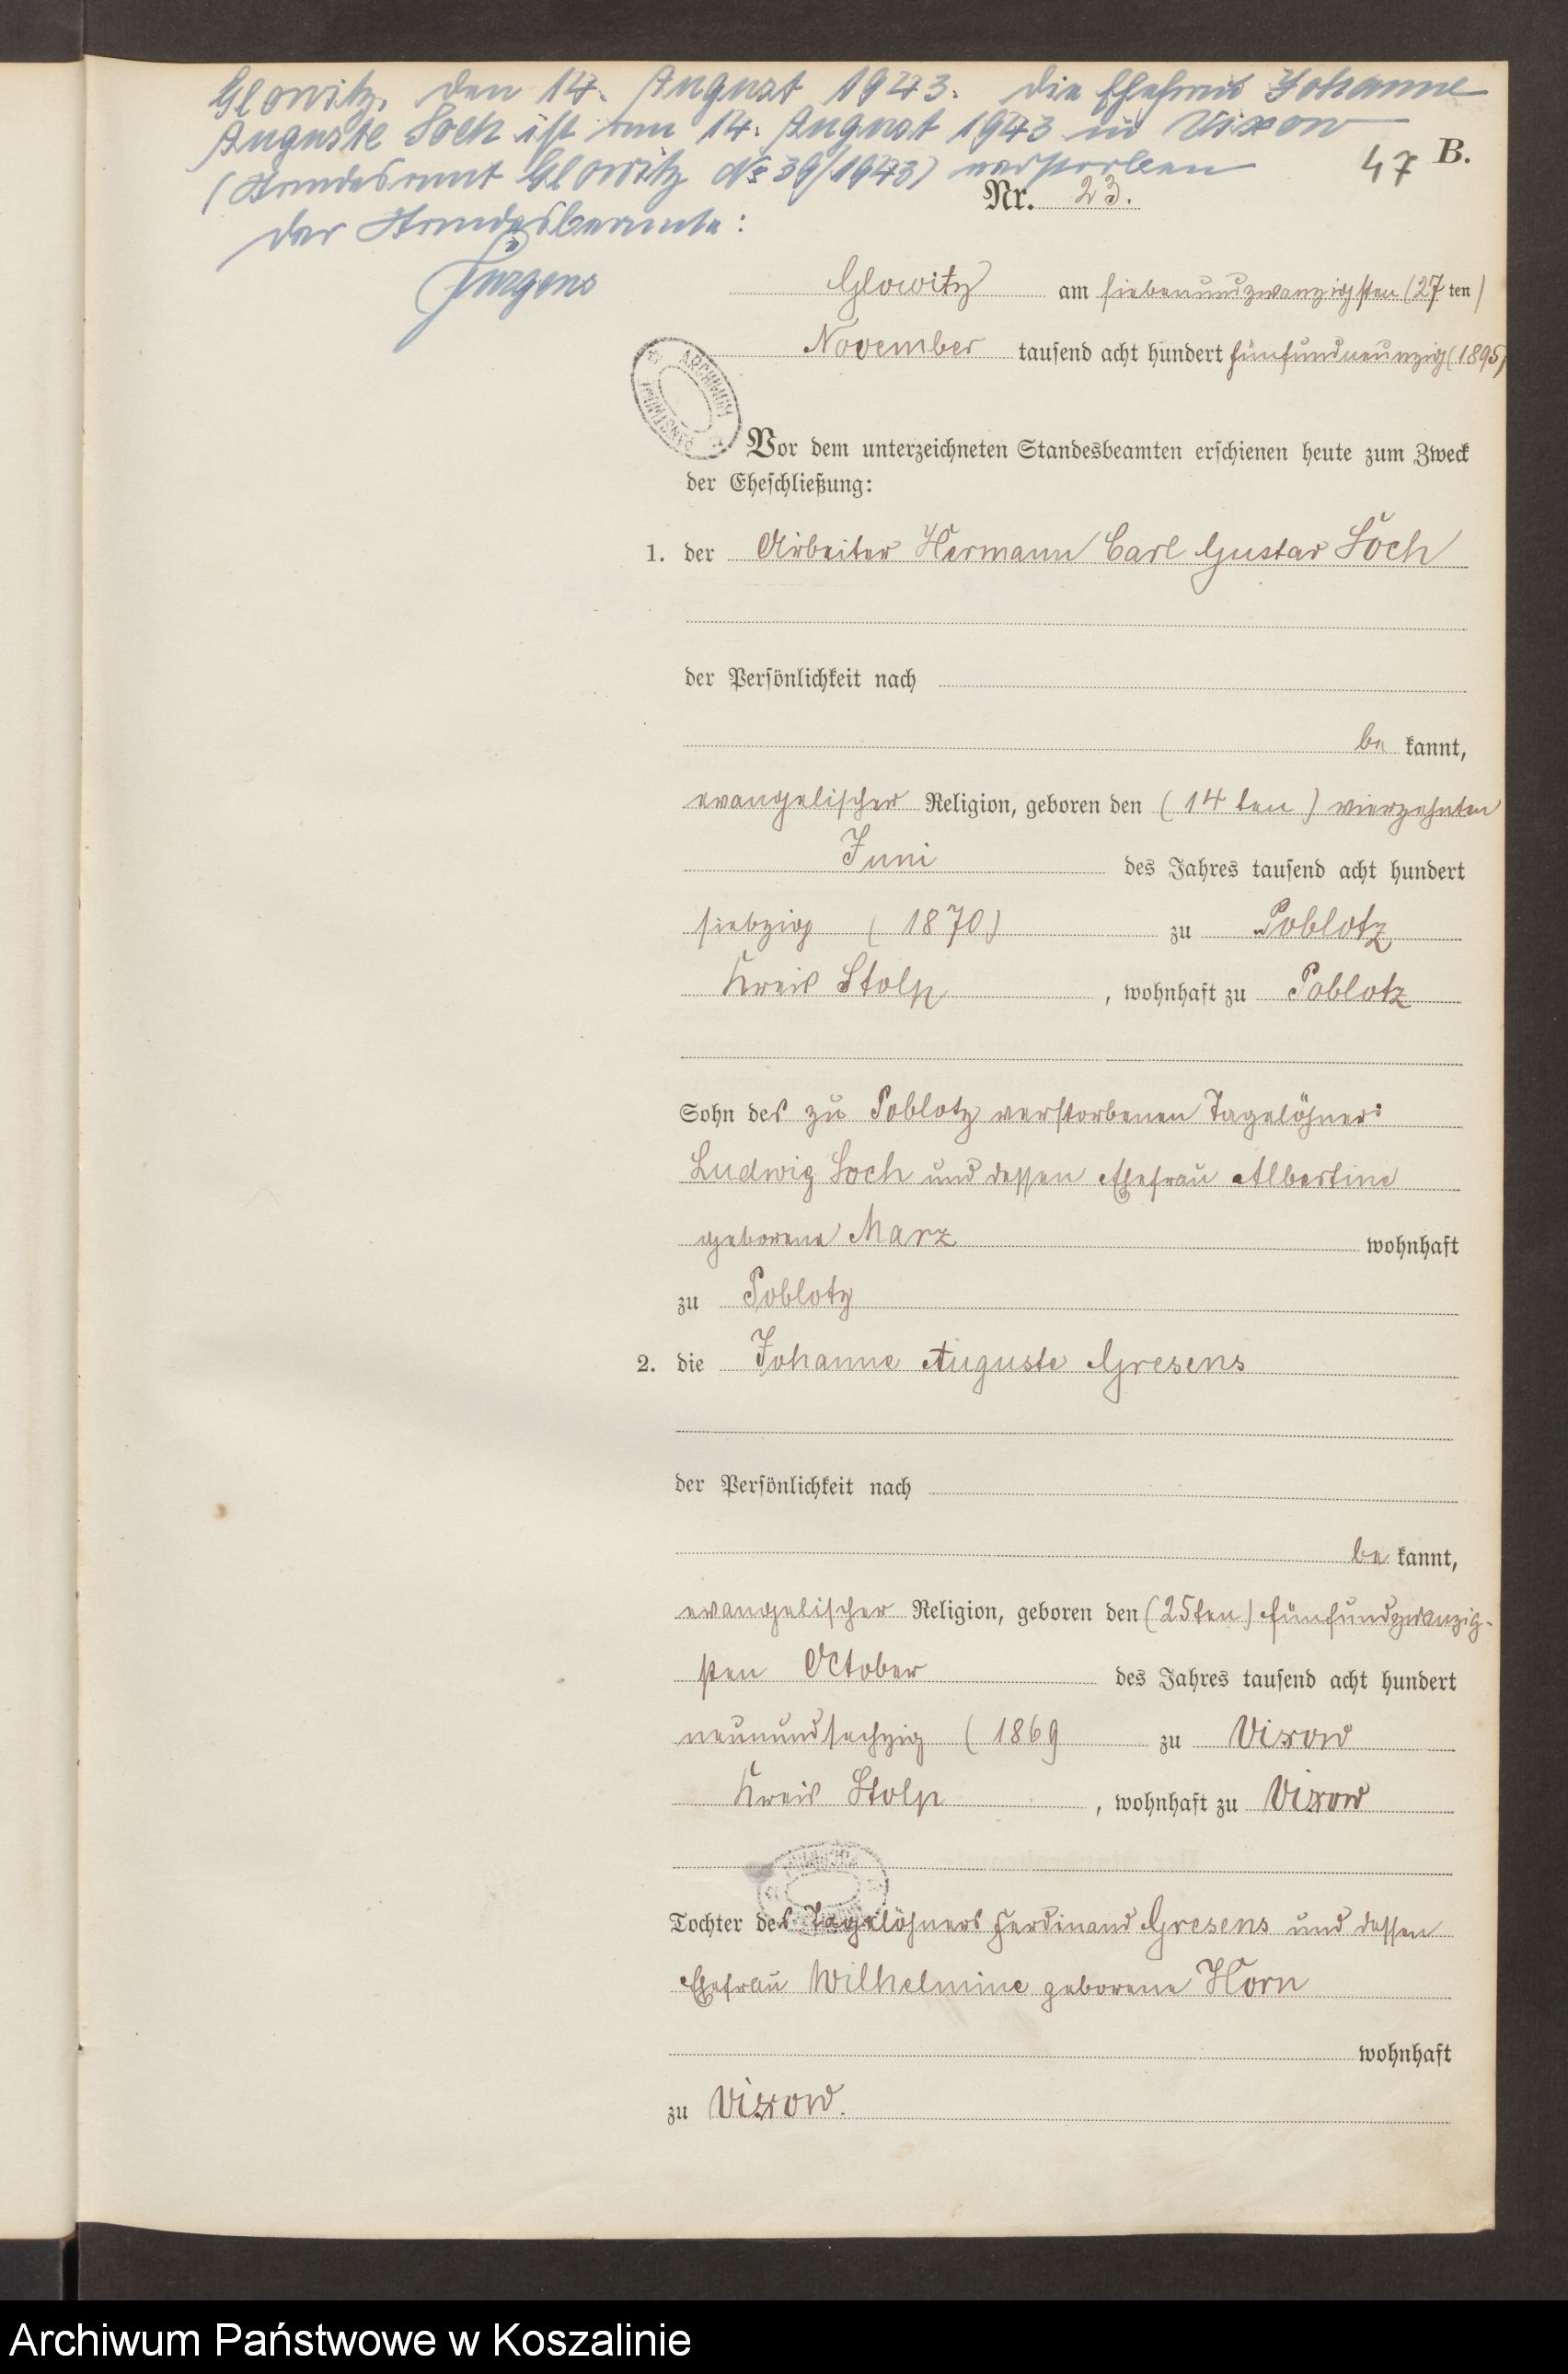 Glowitz, den 14. August 1943. Die Ehefrau Johanne
Auguste Soch ist am 14. August 1943 in Vixow
(Standesamt Glowitz Nr 39/1943) verstorben
Der Standesbeamte:
Jürgens
47 B.
Nr. 23.
Glowitz am siebenundzwanzigsten (27ten)
November tausend acht hundert fünfundneunzig (1895)
ARCHIWUM PAŃSTWOWE
Vor dem unterzeichneten Standesbeamten erschienen heute zum Zweck
der Eheschließung:
1. der Arbeiter Hermann Carl Gustav Soch
der Persönlichkeit nach
be kannt,
evangelischer Religion, geboren den (14ten) vierzehnten
Juni des Jahres tausend acht hundert
siebzig (1870) zu Poblotz
Kreis Stolp, wohnhaft zu Poblotz
Sohn des zu Poblotz verstorbenen Tagelöhners
Ludwig Soch und dessen Ehefrau Albertine
geborene Marz wohnhaft
zu Poblotz
2. die Johanne Auguste Gresens
der Persönlichkeit nach
be kannt,
evangelischer Religion, geboren den (25ten) fünfundzwanzig-
sten October des Jahres tausend acht hundert
neunundsechzig (1869 zu Vixow
Kreis Stolp, wohnhaft zu Vixow
Tochter des Tagelöhners Ferdinand Gresens und dessen
Ehefrau Wilhelmine geborene Horn
wohnhaft
zu Vixow.
Archiwum Państwowe w Koszalinie